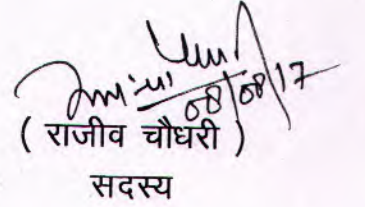 08/08/17
( राजीव चौधरी )
सदस्य